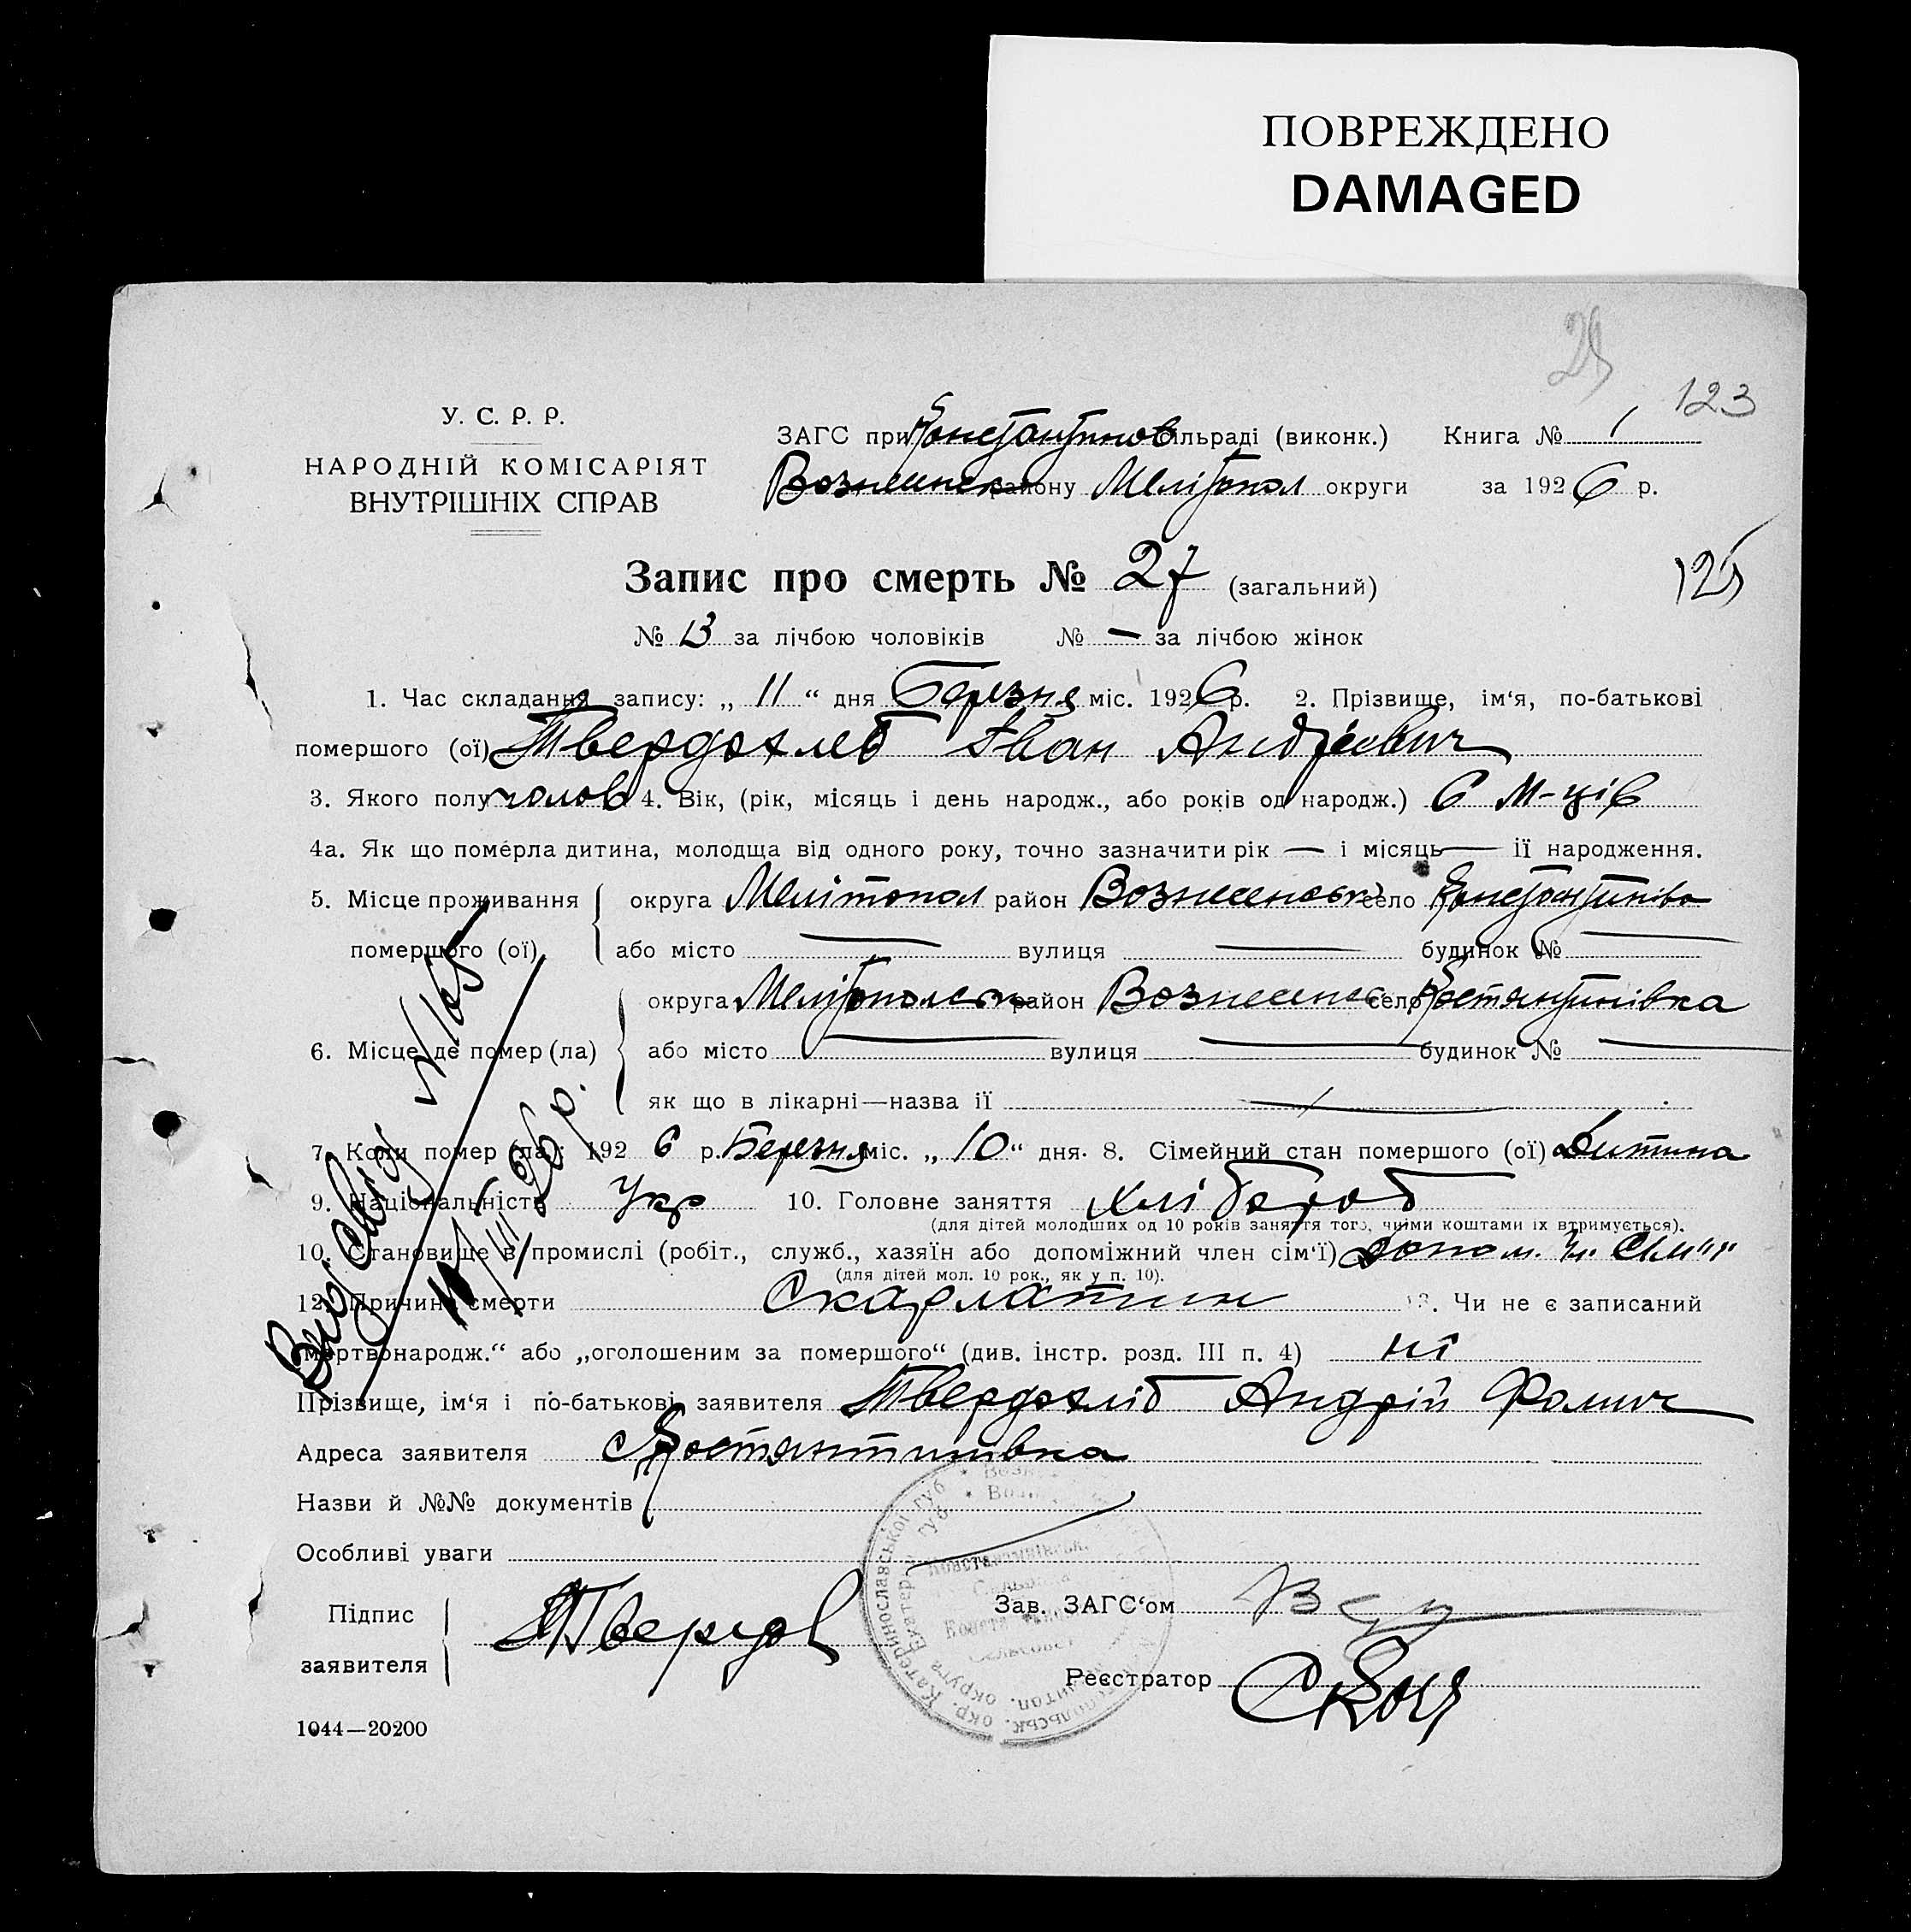 ПОВРЕЖДЕНО
DAMAGED
29
123
У. С. Р. Р.
НАРОДНІЙ КОМІСАРІЯТ
ВНУТРІШНІХ СПРАВ
ЗАГС при Константинов сільраді (виконк.) Книга № 1
Вознесенск району Меліtопол округи за 1926 р.
Запис про смерть № 27 (загальний)
125
№ 13 за лічбою чоловіків № — за лічбою жінок
1. Час складання запису: „ 11 “ дня Березня міс. 1926 р. 2. Прізвище, ім'я, по-батькові
померлого (ої) Твердохлеб Іван Андрієвич
3. Якого полу чолов 4. Вік, (рік, місяць і день народж., або років од народж.) 6 м-ців
4а. Як що померла дитина, молодща від одного року, точно зазначити рік — і місяць — її народження.
5. Місце проживання округа Мелітопол район Вознесенськ село Константинівка
помершого (ої) або місто — вулиця — будинок № —
6. Місце де помер (ла) округа Мелітопольськ район Вознесенс село Костянтинівка
або місто — вулиця — будинок № —
як що в лікарні—назва її —
7. Коли помер (ла): 1926 р. Березня міс. „ 10 “ дня. 8. Сімейний стан помершого (ої) Дитина
9. Національність Укр 10. Головне заняття хлібороб
(для дітей молодших од 10 років заняття того, чиїми коштами їх втримується).
10. Становище в промислі (робіт., служб., хазяїн або допоміжний член сім'ї) допом. чл. сім'ї
(для дітей мол. 10 рок., як у п. 10).
12. Причина смерти Скарлатин 13. Чи не є записаний
„мертвонародж.“ або „оголошеним за помершого“ (див. інстр. розд. III п. 4) ні
Прізвище, ім'я і по-батькові заявителя Твердохліб Андрій Фомич
Адреса заявителя с Костянтинівка
Назви й №№ документів
Особливі уваги
Підпис
заявителя
АТвердох
Зав. ЗАГС'ом
Реєстратор
1044—20200
№ 165